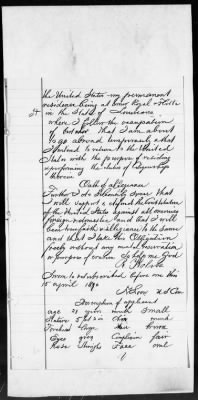 the United States my permanent
residence being at
in the State of Louisiana
where I follow the occupation
of that I am about
to go abroad temporarily & that
I intend to return to the United
States with the purpose of residing
& performing the duties of citizenship
therein
Oath of allegiance
Further I do solemnly swear that
I will support & defend the Constitution
of the United States against all enemies
foreign & domestic and that I will
bear true faith & allegiance to the same
and that I take this Obligation
freely without any mental reservation
or purpose of evasion So help me God
Sworn to & subscribed before me this
15 april
Description of applicant
age years mouth Small
Stature 5 ft in Chin
Forehead large Hair brown
Eyes grey Complexion fair
Nose Straight Face oval